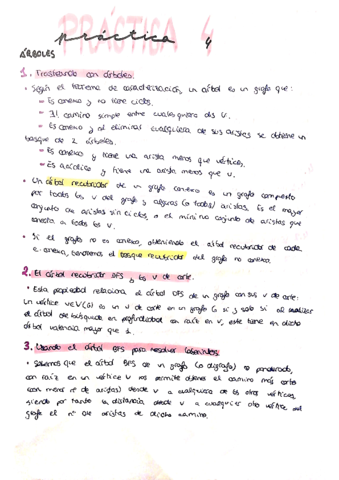 PRÁCTICA 4
práctica 4
ÁRBOLES
1. Trasteando con árboles:
• Según el teorema de caracterización, un árbol es un grafo que:
- Es conexo y no tiene ciclos.
- El camino simple entre cualesquiera dos v.
- Es conexo y al eliminar cualquiera de sus aristas se obtiene un
bosque de 2 árboles.
- Es conexo y tiene una arista menos que vértices.
- Es acíclico y tiene una arista menos que v.
• Un árbol recubridor de un grafo conexo es un grafo compuesto
por todos los v del grafo y algunas (o todas) aristas. Es el mayor
conjunto de aristas sin ciclos, o el mínimo conjunto de aristas que
conecta a todos los v.
• Si el grafo no es conexo, obteniendo el árbol recubridor de cada
c. conexa, tendremos el bosque recubridor del grafo no conexo.
2. El árbol recubridor DFS y los v de corte.
• Esta propiedad relaciona el árbol DFS de un grafo con sus v de corte:
Un vértice v∈V(G) es un v de corte en un grafo G si y solo si al realizar
el árbol de búsqueda en profundidad con raíz en v, este tiene en dicho
árbol valencia mayor que 1.
3. Usando el árbol BFS para resolver laberintos:
• Sabemos que el árbol BFS de un grafo (o digrafo) no ponderado,
con raíz en un vértice v nos permite obtener el camino más corto
(con menor nº de aristas) desde v a cualquiera de los otros vértices,
siendo por tanto la distancia desde v a cualquier otro vértice del
grafo el nº de aristas de dicho camino.